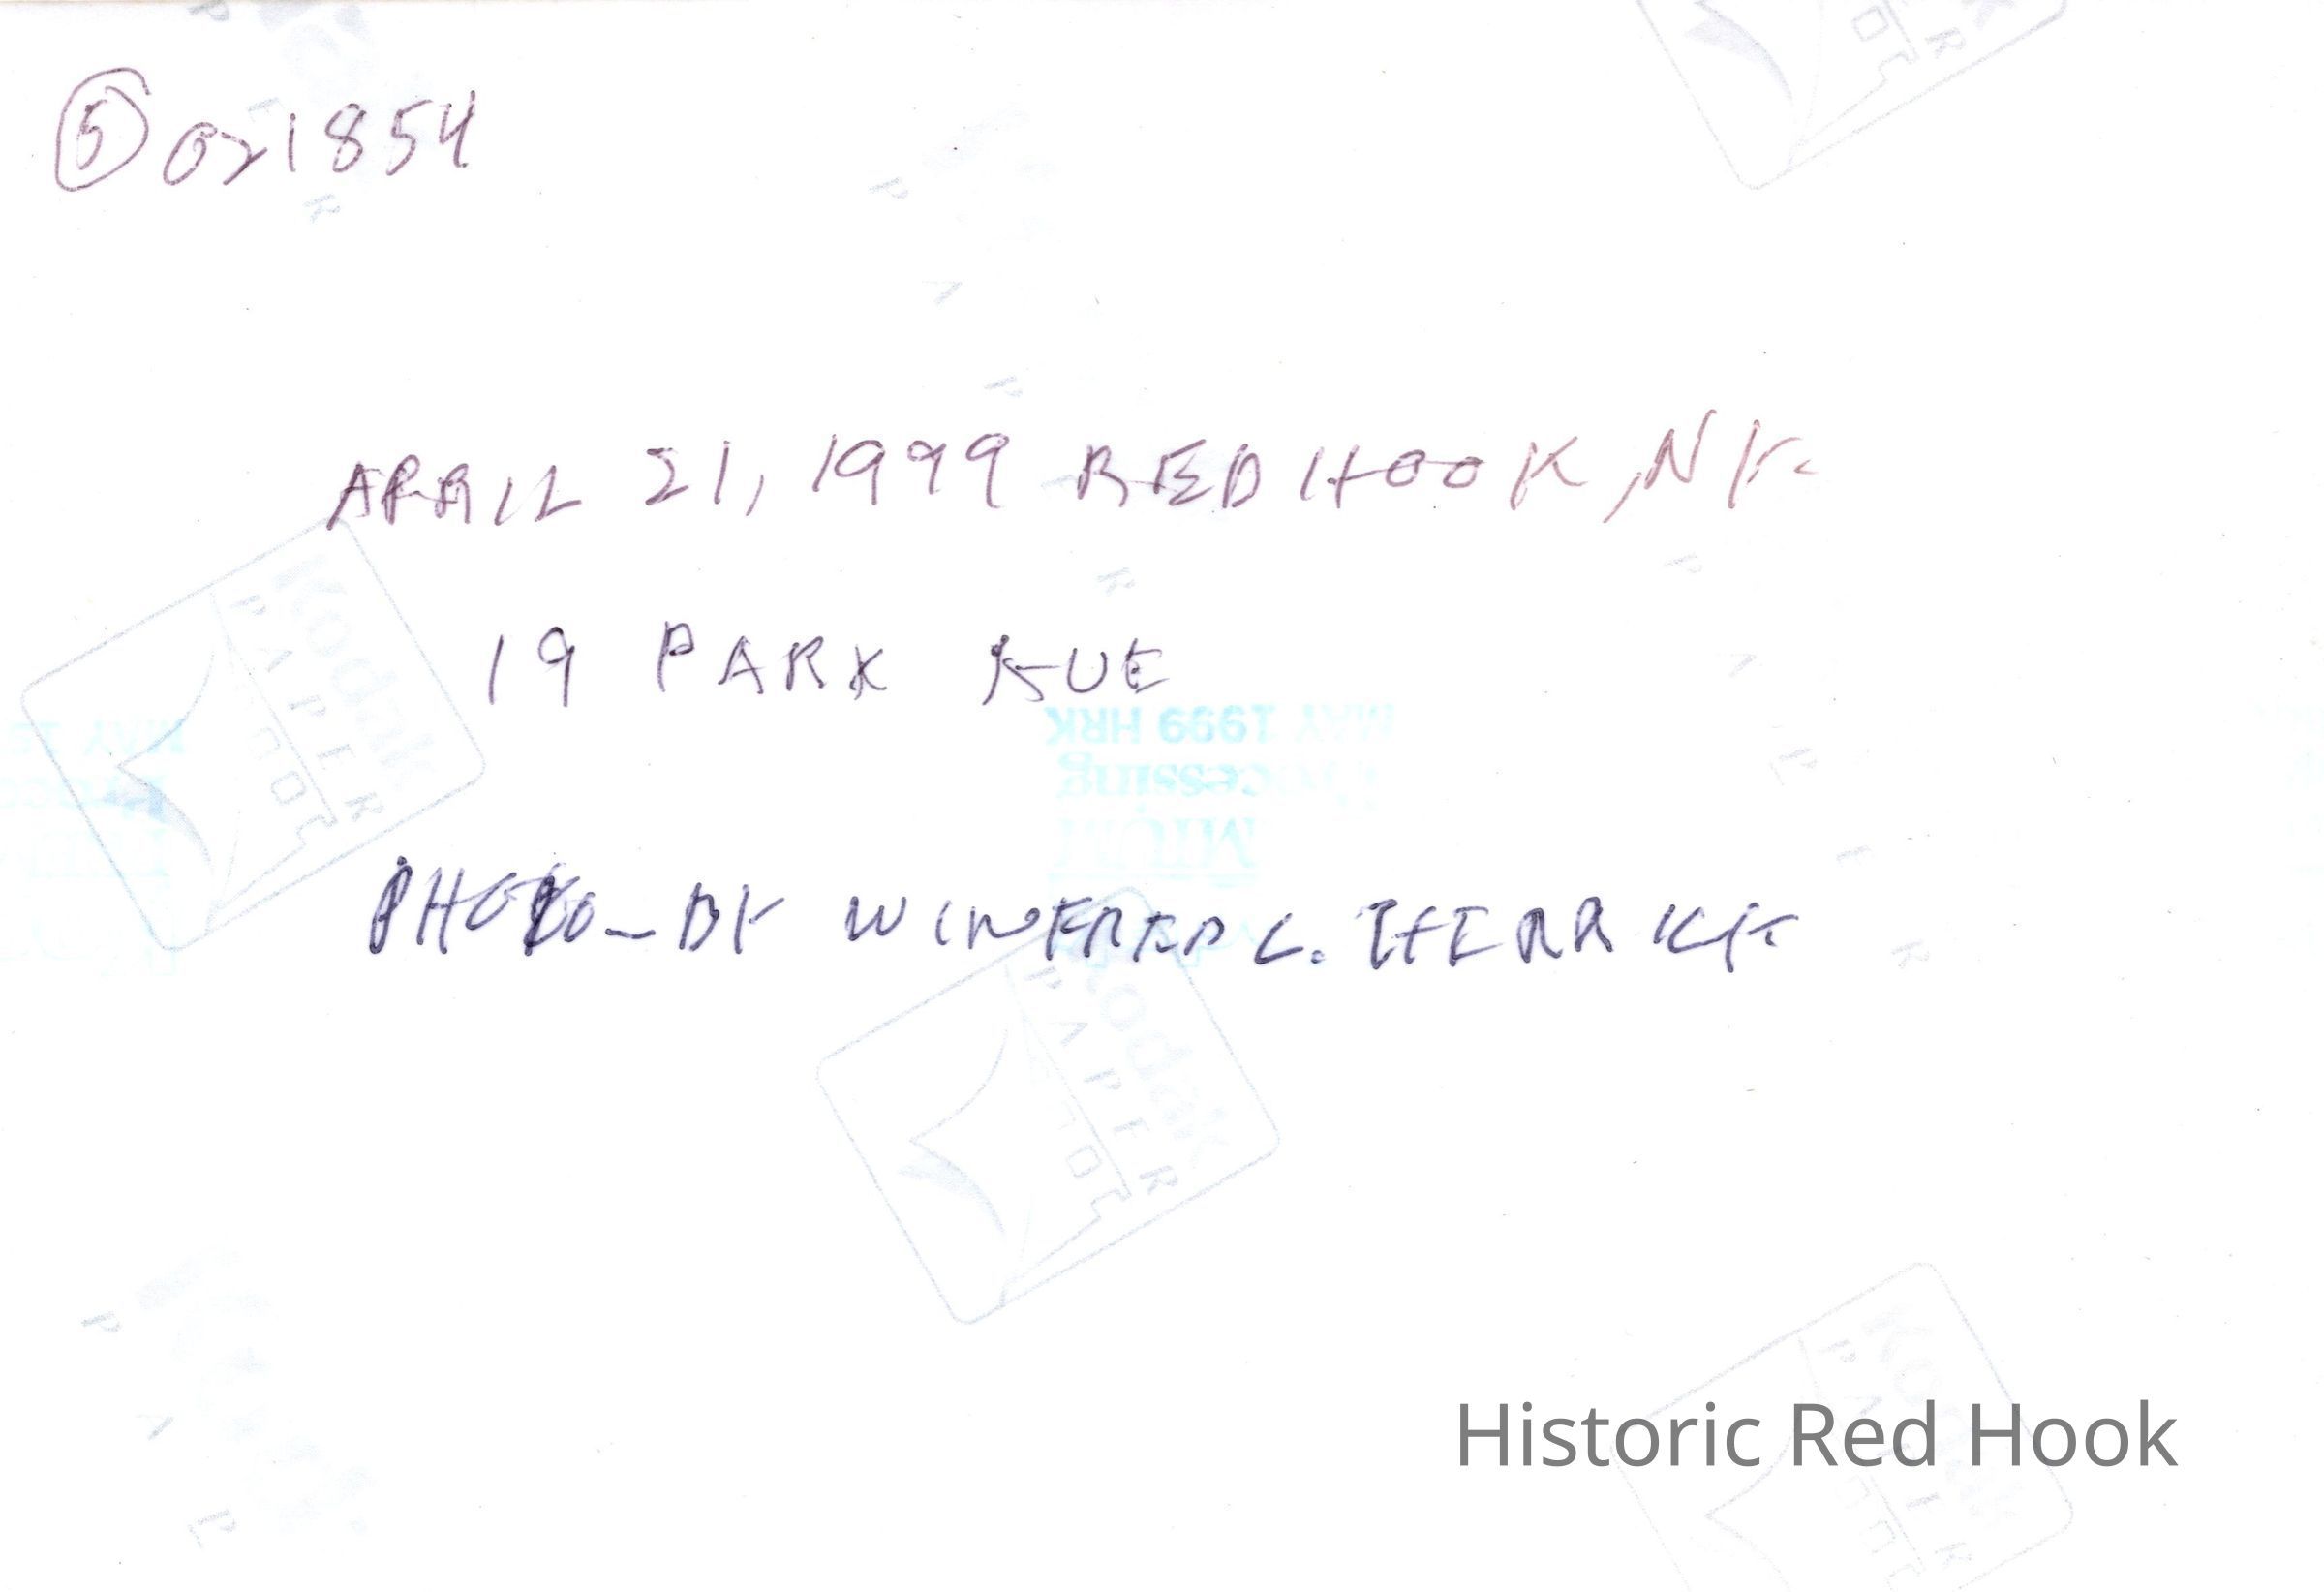 ⑤ 021854
APRIL 21, 1999 RED HOOK, NY.
19 PARK AVE
MAY 1999 HRK
Processing
PHOTO-BY WINFRED C.
Kodak
PAPER
Kodak
PAPER
Kodak
Historic Red Hook